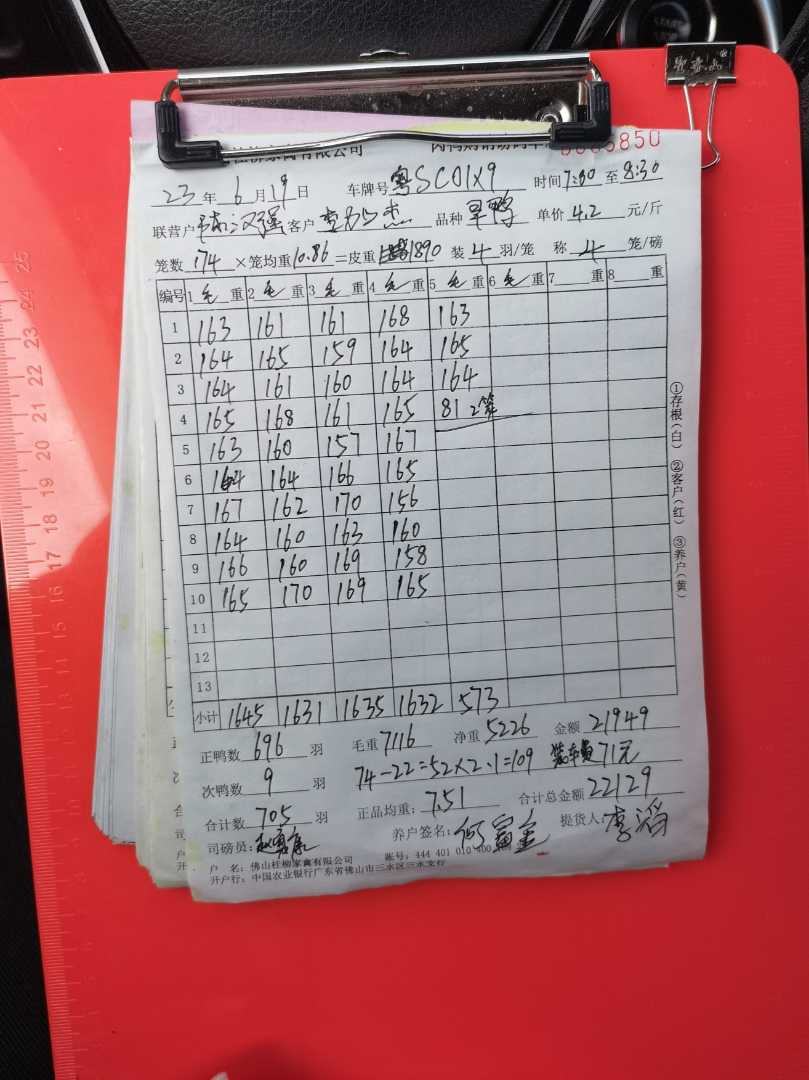 有限公司
5850
23年6月19日 车牌号 粤SC01X9 时间7:00至8:30
联营户 强 客户 杰 品种 旱鸭 单价4.2元/斤
笼数174×笼均重10.86=皮重1890 装4羽/笼 称4笼/磅
编号 1毛重 2毛重 3毛重 4毛重 5毛重 6毛重 7重 8重
1 163 161 161 168 163
2 164 165 159 164 165
3 164 161 160 164 164
4 165 168 161 165 81 2笼
5 163 160 157 167
6 164 164 166 165
7 167 162 170 156
8 164 160 163 160
9 166 160 169 158
10 165 170 169 165
11
12
13
小计 1645 1631 1635 1632 573
正鸭数696羽 毛重7116 净重5226 金额21949
次鸭数9羽 74-22=52×2.1=109 装车费71元
合计数705羽 正品均重:7.51 合计总金额22129
司磅员: 养户签名: 何富全 提货人: 李滔
户名:佛山桂柳家禽有限公司 账号:444 401 010 400
开户行:中国农业银行广东省佛山市三水区三水支行
①存根(白) ②客户(红) ③养户(黄)
25
24
23
22
21
20
19
18
17
16
15
14